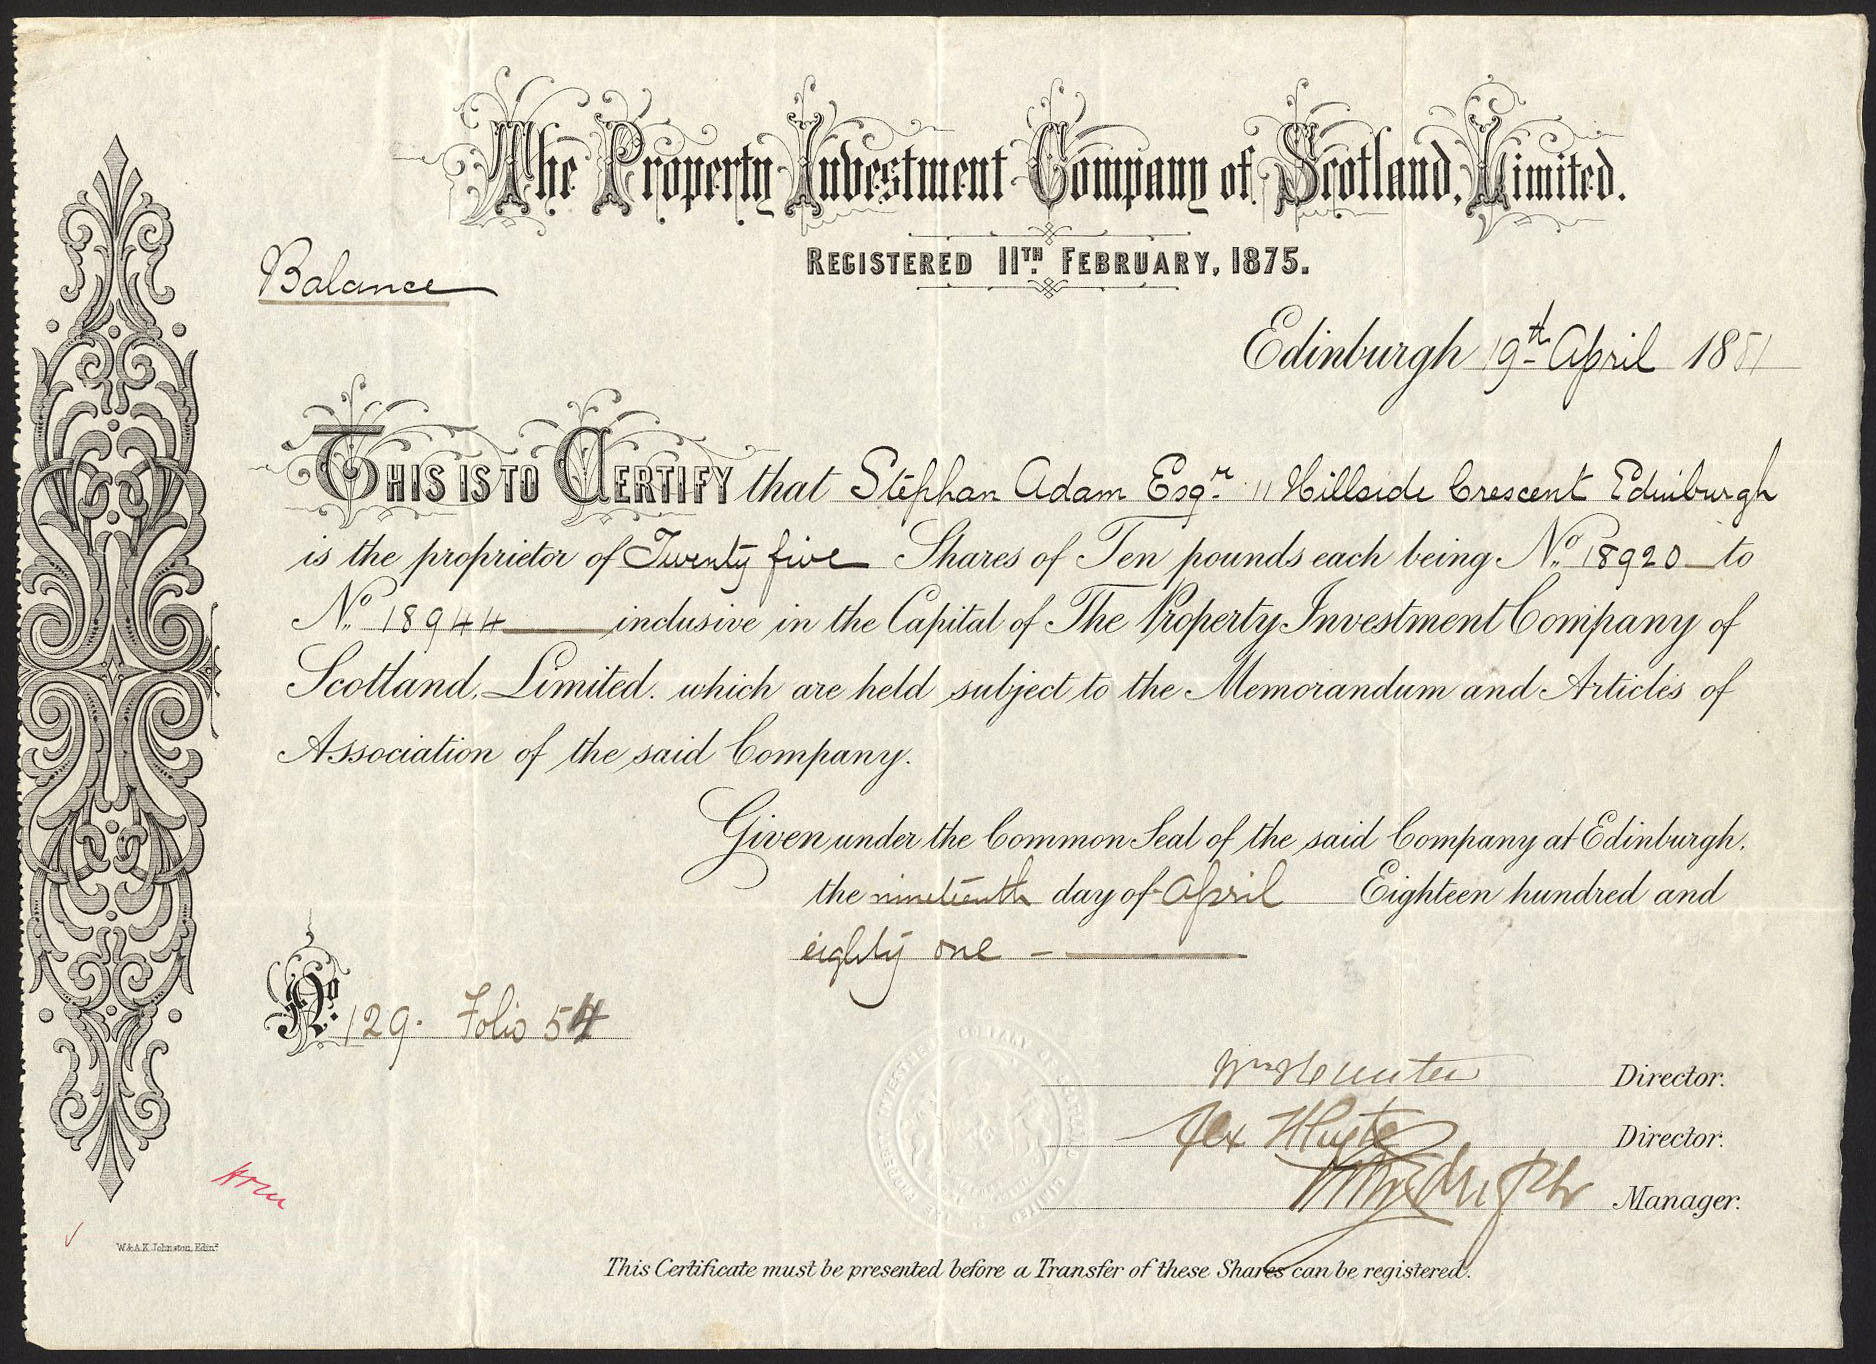 The Property Investment Company of Scotland, Limited.
REGISTERED 11TH FEBRUARY, 1875.
Balance
Edinburgh 19th April 1881
THIS IS TO CERTIFY that Stephan Adam Esqr. 11 Hillside Crescent Edinburgh
is the proprietor of Twenty five Shares of Ten pounds each being No. 18920 to
No. 18944 inclusive in the Capital of The Property Investment Company of
Scotland, Limited. which are held subject to the Memorandum and Articles of
Association of the said Company.
Given under the Common Seal of the said Company at Edinburgh.
the nineteenth day of April Eighteen hundred and
eighty one
No. 129. Folio 54
Wm Hunter Director.
Alex Director.
Manager.
W. & A.K. Johnston, Edinr.
This Certificate must be presented before a Transfer of these Shares can be registered.